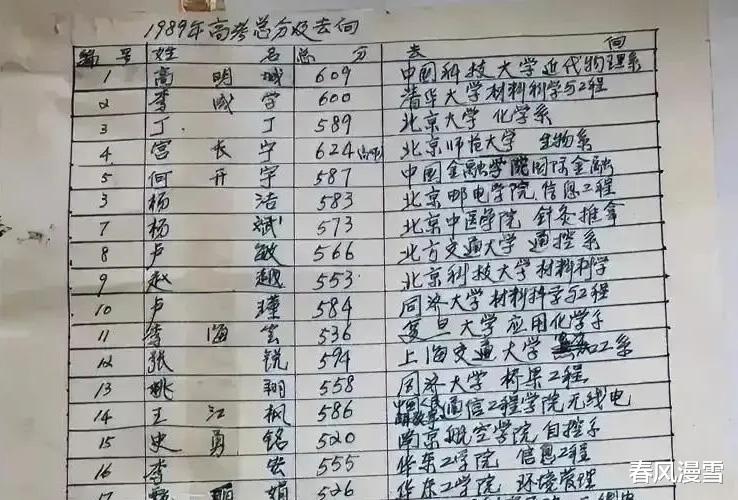 1989年高考总分及去向
编号 姓名 总分 去向
1 高明城 609 中国科技大学近代物理系
2 李咸学 600 清华大学材料科学与工程
3 丁丁 589 北京大学 化学系
4 宫长宁 624 北京师范大学 生物系
5 何开宇 587 中国金融学院国际金融
3 杨浩 583 北京邮电学院 信息工程
7 杨斌 573 北京中医学院 针灸推拿
8 卢敏 566 北方交通大学 通控系
9 赵越 553 北京科技大学材料科学
10 卢瑾 584 同济大学材料科学与工程
11 李海云 536 复旦大学 应用化学系
12 张锐 594 上海交通大学 加工系
13 姚翔 558 同济大学 桥梁工程
14 王江枫 586 中国人民解放军通信工程学院无线电
15 史勇铭 520 南京航空学院 自控系
16 李宏 555 华东工学院 信息工程
17 丽娟 526 华东工学院 环境管理
春风漫雪